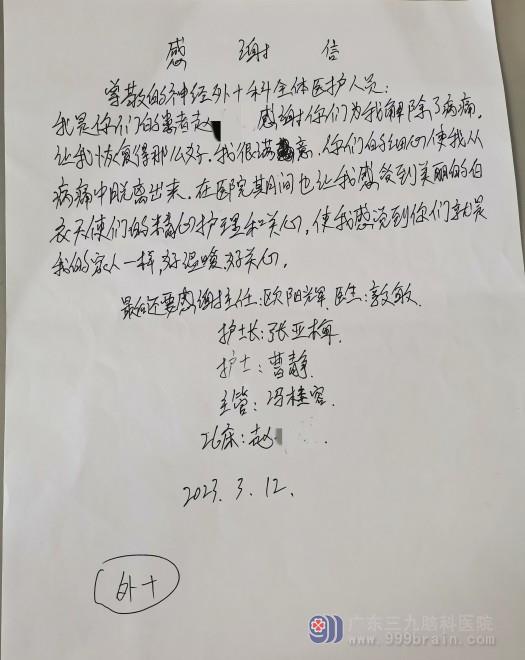 感 谢 信
尊敬的神经外十科全体医护人员:
我是你们的患者赵 感谢你们为我解除了病痛,
让我恢复得那么好。我很满意,你们的细心使我从
病痛中脱离出来。在医院期间也让我感谈到美丽的白
衣天使们的精心护理和关心,使我感谈到你们就是
我的家人一样,好温暖,好关心。
最后还要感谢主任:欧阳辉 医生:郭敏.
护士长:张亚梅.
护士:曹静.
主管:冯桂容.
26床:赵
2023.3.12.
外十
广东三九脑科医院
www.999brain.com